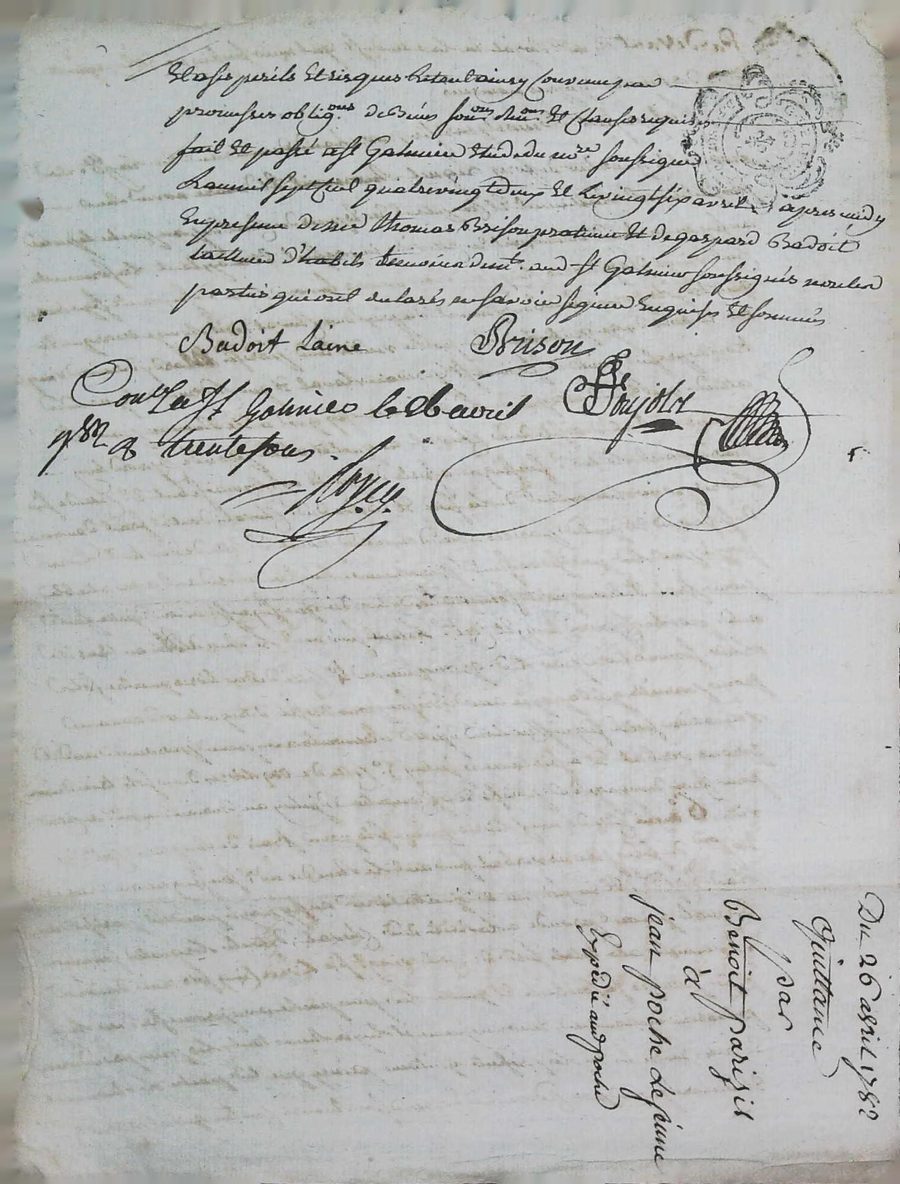 Et a ses perils Et risques Et tout ainsy Convenu par
promesses oblig.ons de biens soum.ons renon.ons Et Clauses requises
fait Et passé a st Galmier Etude du no.re soussigné
L'an mil sept Cent quatre vingt deux Et Le vingt six avril après midy
En presence de sieur thomas Brison praticien Et de gaspard Badoit
tailleur d'habits temoins dem.ts aud st Galmier soussignés non les
parties qui ont declarés ne savoir signer Enquises Et sommées
Badoit Laine Brison
Con.lé a St Galmier le 26 avril
1782 R trente sous.
Du 26 avril 1782
quittance
par
Benoit parizit
à
jean poche Le jeune
Expedié aud poche